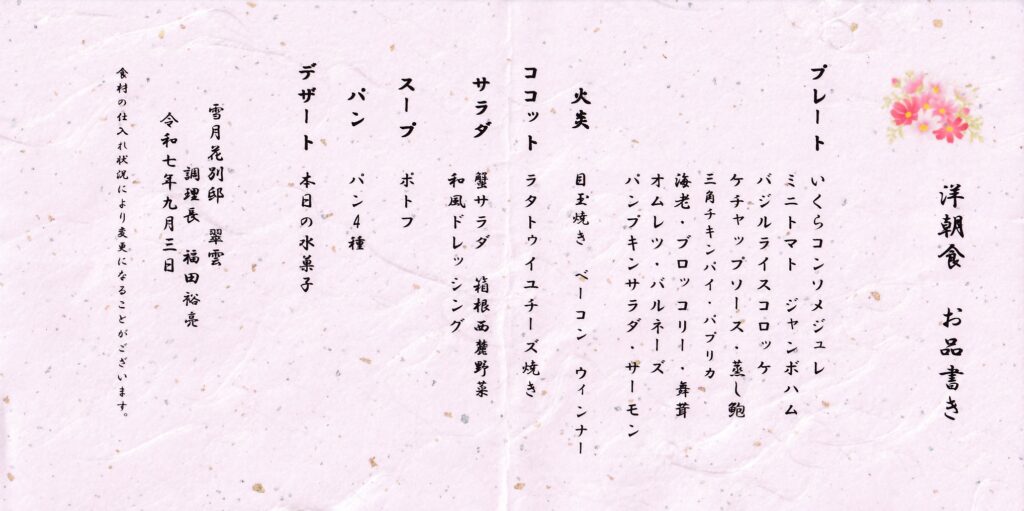 洋朝食 お品書き
プレート いくらコンソメジュレ
ミニトマト ジャンボハム
バジルライスコロッケ
ケチャップソース・蒸し鮑
三角チキンパイ・パプリカ
海老・ブロッコリー・舞茸
オムレツ・バルネーズ
パンプキンサラダ・サーモン
火炎 目玉焼き ベーコン ウィンナー
ココット ラタトゥイユチーズ焼き
サラダ 蟹サラダ 箱根西麓野菜
和風ドレッシング
スープ ポトフ
パン パン4種
デザート 本日の水菓子
雪月花別邸 翠雲
調理長 福田裕亮
令和七年九月三日
食材の仕入れ状況により変更になることがございます。